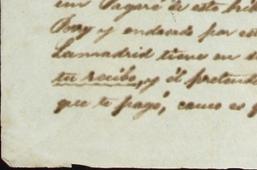 un Pagaré de este
Bory y endosado por es
Lamadrid tiene en s
tu recibo, y él pretend
que te pagó, como es